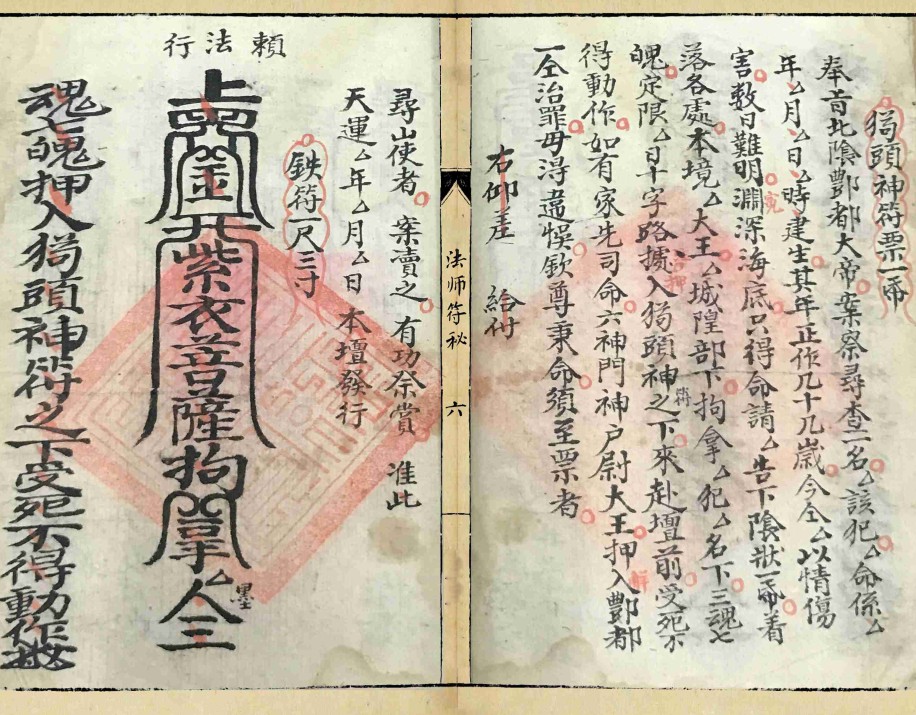 猖頭神符票一命
奉旨北陰酆都大帝案祭尋查一名厶該犯厶命係厶
年厶月厶日厶時建生其年正作几十几歲今仝厶以情傷
害數日難明淵深海底只得命請厶告下陰狀一命着
落各處本境厶大王厶城隍部下拘拿厶犯厶名下三魂七
魄定限厶日十字路攄入猖頭神符之下來赴壇前受死不
得動作如有家先司命六神門神户尉大王押入酆都
一仝治罪毋得違悞欽尊秉命須至票者
右仰差 給付
法师符秘
六
尋山使者 案賣之 有功祭賞 准此
天運厶年厶月厶日 本壇發行
鉄符一尺三寸
賴法行
紫衣菩薩拘拿厶人三
墨
魂七魄押入猖頭神符之下受死不得動作